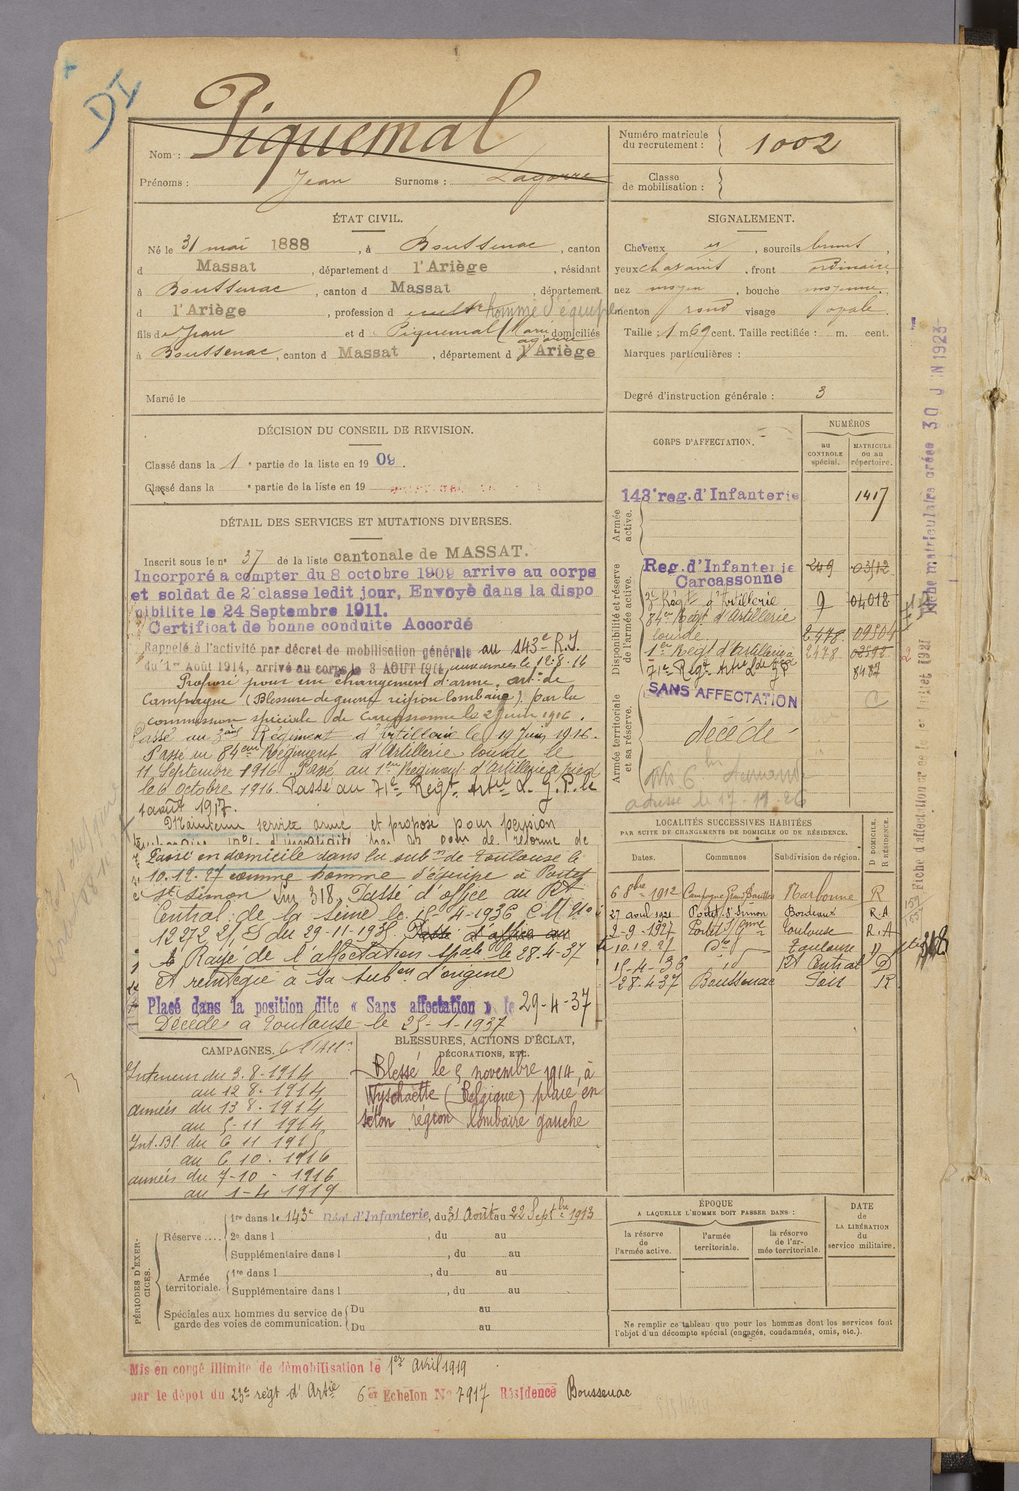 DI
Nom : Piquemal
Prénoms : Jean Surnoms : Lagarre
Numéro matricule du recrutement : 1002
Classe de mobilisation :
ÉTAT CIVIL.
Né le 31 mai 1888, à Boussenac, canton
d Massat, département d l'Ariège, résidant
à Boussenac, canton d Massat, département
d l'Ariège, profession d homme d'équipe
fils de Jean et d Piquemal Marie domiciliés
à Boussenac, canton d Massat, département d l'Ariège
Marié le
SIGNALEMENT.
Cheveux et, sourcils bruns,
yeux chatains, front ordinaire,
nez moyen, bouche moyenne,
menton rond visage ovale.
Taille : 1 m. 69 cent. Taille rectifiée : m. cent.
Marques particulières :
Degré d'instruction générale : 3
DÉCISION DU CONSEIL DE REVISION.
Classé dans la 1e partie de la liste en 1909.
Classé dans la e partie de la liste en 19
DÉTAIL DES SERVICES ET MUTATIONS DIVERSES.
Inscrit sous le no 37 de la liste cantonale de MASSAT.
Incorporé a compter du 8 octobre 1909 arrive au corps
et soldat de 2e classe ledit jour, Envoyè dans la dispo
nibilite le 24 Septembre 1911.
Certificat de bonne conduite Accordé
Rappelé à l'activité par décret de mobilisation générale au 143e R.I.
du 1er Août 1914, arrivé au corps le 3 AOUT 1914, aux armées le 12.8.14
Proposé pour un changement d'arme, art. de
Campagne (Blessure de guerre région lombaire) par la
commission spéciale de Carcassonne le 2 juin 1916.
Passé au 3ème Régiment d'Artillerie le 19 juin 1916.
Passé au 84eme Régiment d'Artillerie lourde le
11 Septembre 1916. Passé au 1er Régiment d'Artillerie à pied
le 6 octobre 1916. Passé au 71e Regt. Artie L. G. P. le
1 août 1917.
Maintenu service armé et proposé pour pension
Passé en domicile dans la subon de Toulouse le
10.12.27 comme homme d'équipe à Portet
St Simon Son 318. Passé d'office au Rt
Central de la Seine le 15-4-1936 C.M. no
12272 2/1 S du 29-11-1935. Passé d'office au
Rayé de l'affectation spale le 28.4.37
et réintégré à sa subon d'origine
Placé dans la position dite « Sans affectation » le 29-4-37
Décédé à Toulouse le 25-1-1937
CORPS D'AFFECTATION.
NUMÉROS
au CONTROLE spécial.
MATRICULE ou au répertoire.
Armée active.
143e reg. d'Infanterie 1417
Disponibilité et réserve de l'armée active.
Reg. d'Infanterie Carcassonne 249 03912
3e Régt d'Artillerie 9 04018
84e Régt d'Artillerie lourde 2478 09504
1er Régt d'Artillerie à 2478 02598
71e Regt Artie Lde G.P. 8482
Armée territoriale et sa réserve.
SANS AFFECTATION C
décédé
adresse le 17-11-26
LOCALITÉS SUCCESSIVES HABITÉES
PAR SUITE DE CHANGEMENTS DE DOMICILE OU DE RÉSIDENCE.
Dates. Communes Subdivision de région. D DOMICILE. R RÉSIDENCE.
6 8bre 1912 Narbonne R
27 avril 1921 Portet St Simon Bordeaux R.A
2-9-1927 Portet St Simon Toulouse R.A
10.12.27 do Toulouse D
15-4-36 id Rt Central D
28-4-37 Boussenac Foix R
CAMPAGNES.
Intérieur du 3.8.1914
au 12.8.1914
armées du 13 8.1914
au 5-11 1914
Int. Bl du 6 11 1915
au 6 10.1916
armées du 7-10-1916
au 1-4 1919
BLESSURES, ACTIONS D'ÉCLAT, DÉCORATIONS, ETC.
Blessé le 5 novembre 1914, à
Wyschaette (Belgique) plaie en
séton région lombaire gauche
PÉRIODES D'EXERCICES.
Réserve.... 1re dans le 143e Régt d'Infanterie, du 31 Août au 22 Septbre 1913
2e dans l , du au
Supplémentaire dans l , du au
Armée territoriale. 1re dans l , du au
Supplémentaire dans l , du au
Spéciales aux hommes du service de garde des voies de communication. Du au
Du au
ÉPOQUE
A LAQUELLE L'HOMME DOIT PASSER DANS :
la réserve de l'armée active.
l'armée territoriale.
la réserve de l'armée territoriale.
DATE de LA LIBÉRATION du service militaire.
Ne remplir ce tableau que pour les hommes dont les services font
l'objet d'un décompte spécial (engagés, condamnés, omis, etc.).
Mis en congé illimité de démobilisation le 1er Avril 1919
par le dépôt du 23e régt d'Artie 6er Echelon No 7917 Résidence Boussenac
Fiche matriculaire créée 30 JUIN 1923